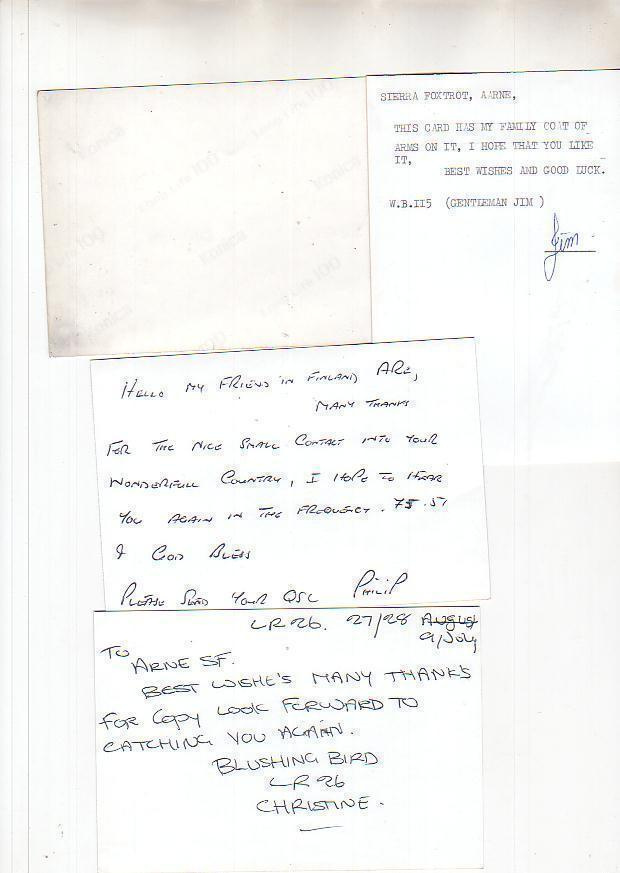 Konica
Long Life 100
Konica
Konica
Long Life 100
Konica
SIERRA FOXTROT, AARNE,
THIS CARD HAS MY FAMILY COAT OF
ARMS ON IT, I HOPE THAT YOU LIKE
IT,
BEST WISHES AND GOOD LUCK.
W.B.II5 (GENTLEMAN JIM )
Jim
HELLO MY FRIEND IN FINLAND ARE,
MANY THANKS
FOR THE NICE SMALL CONTACT INTO YOUR
WONDERFULL COUNTRY, I HOPE TO HEAR
YOU AGAIN IN THE FREQUENCY. 75.51
& GOD BLESS
PLEASE SEND YOUR QSL PHILIP
LR26. 27/28 August
9/July
TO
ARNE SF.
BEST WISHE'S MANY THANKS
FOR COPY LOOK FORWARD TO
CATCHING YOU AGAIN.
BLUSHING BIRD
LR26
CHRISTINE.